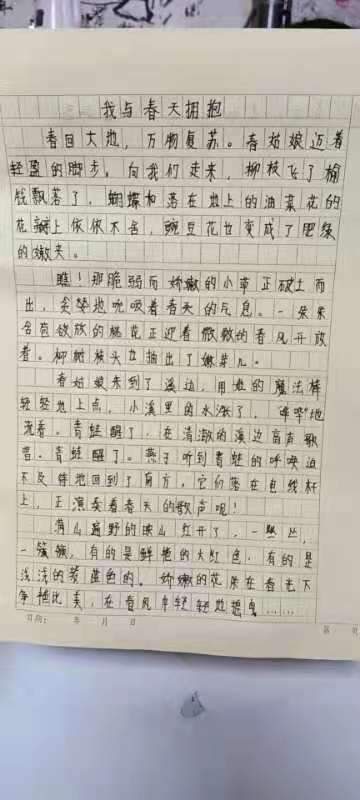 我与春天拥抱
春回大地，万物复苏。春姑娘迈着
轻盈的脚步。向我们走来，柳枝飞了榆
钱飘落了，蝴蝶和落在地上的油菜花的
花瓣上依依不舍，豌豆花也变成了肥绿
的嫩荚。
瞧！那脆弱而娇嫩的小草正破土而
出，贪婪地吮吸着春天的气息。一朵朵
含苞欲放的桃花正迎着微微的春风开放
着。柳树枝头也抽出了嫩芽儿。
春姑娘来到了溪边，用她的魔法棒
轻轻地上点，小溪里的水涨了，哗哗地
流着。青蛙醒了，在清澈的溪边高声歌
唱。青蛙醒了。燕子听到青蛙的呼唤迫
不及待地回到了南方，它们落在电线杆
上，正演奏着春天的歌声呢！
满山遍野的映山红开了，一丛丛，
一簇簇，有的是鲜艳的大红色，有的是
浅浅的蓝色的。娇嫩的花朵在春光下
争艳比美，在春风中轻轻地摇曳……
日期： 年 月 日
第 页